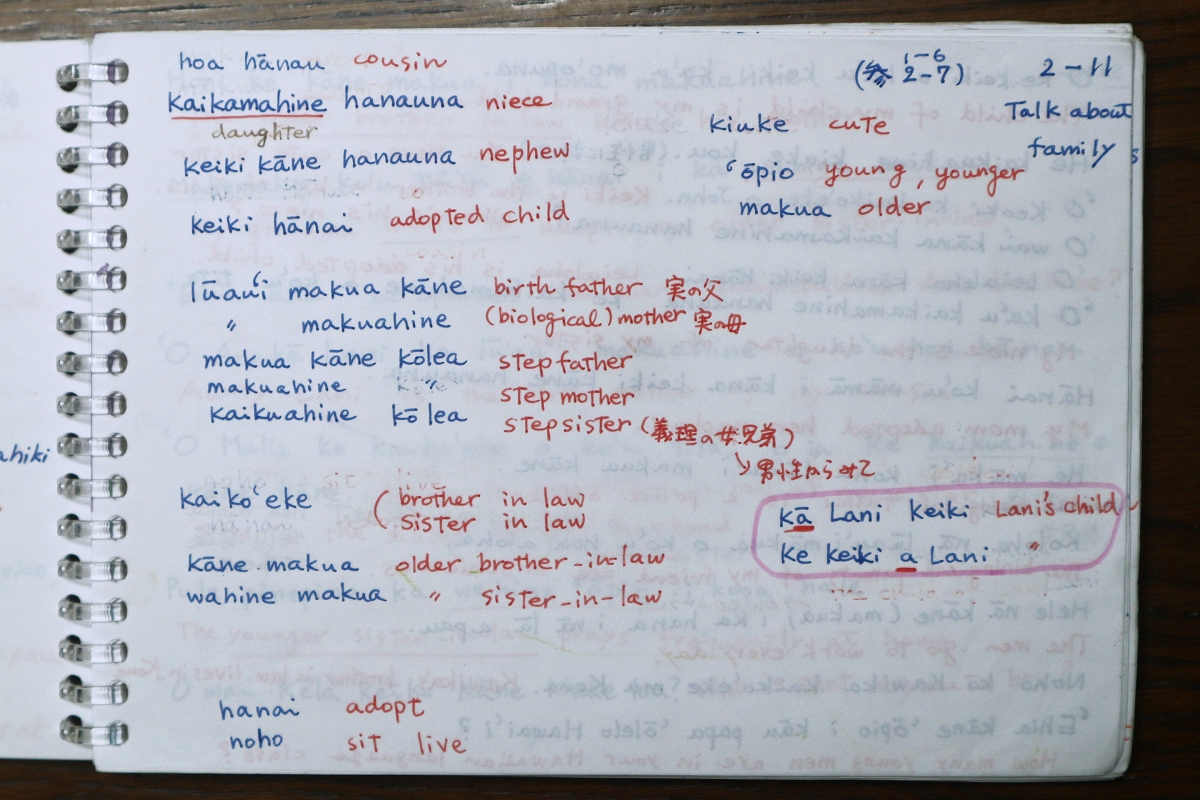 hoa hānau cousin
kaikamahine hanauna niece
daughter
keiki kāne hanauna nephew
keiki hānai adopted child
lūauʻi makua kāne birth father 実の父
〃 makuahine (biological) mother 実の母
makua kāne kōlea step father
makuahine 〃 step mother
kaikuahine kōlea step sister (義理の女兄弟)
↘男性からみて
kaikoʻeke (brother in law
sister in law
kāne makua older brother-in-law
wahine makua 〃 sister-in-law
hanai adopt
noho sit live
1-6
(参 2-7)
2-11
Talk about
family
kiuke cute
ʻōpio young, younger
makua older
kā Lani keiki Lani's child
ke keiki a Lani 〃
ahiki